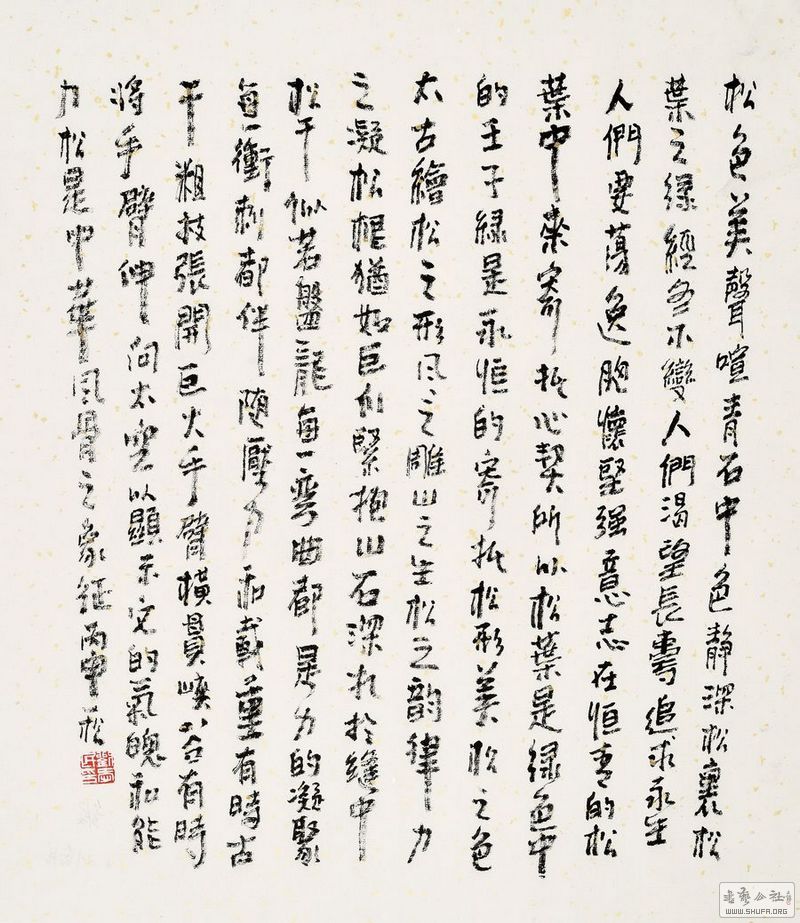 松色美聲喧青石中色靜深松裏松
葉之绿經冬不變人們渴望長壽追求永生
人們要蕩逸胞懷堅强意志在恒青的松
葉中來寄托心契所以松葉是绿色中
的王子绿是永恒的寄托松形美松之色
太古繪松之形风之雕山之生松之韵律力
之凝松根猶如巨爪緊抱山石深扎於縫中
松干似若盤龍每一彎曲都是力的凝聚
每一衝刺都伴随壓力和載重有時古
干粗技張開巨大手臂橫貫峽谷有時
将手臂伸向太空以顯示它的氣魄和能
力松是中華风骨之象征丙申松
書藝公社
WWW.SHUFA.ORG